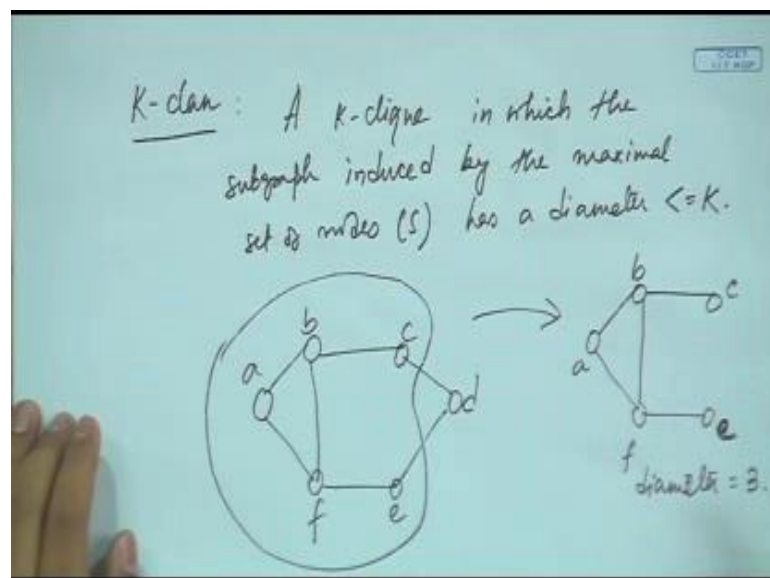 K-clan : A K-clique in which the
subgraph induced by the maximal
set of nodes (S) has a diameter <= K.
b
c
a
d
f
e
b
c
a
e
f
diameter = 3.